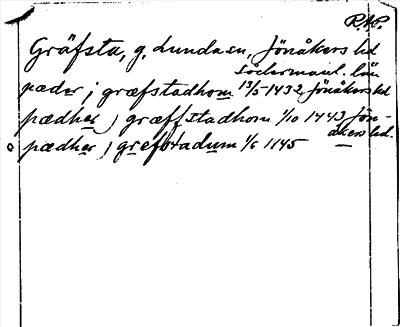 R.A.P.
Gräfsta, g. Lunda sn, Jönåkers hd
Södermanl. län
pæder j græfstadhom 13/5 1432, Jönåkers hd
pædher j græffstadhom 1/10 1443 Jön-
åkers hd.
pædher j grefstadum 1/6 1445